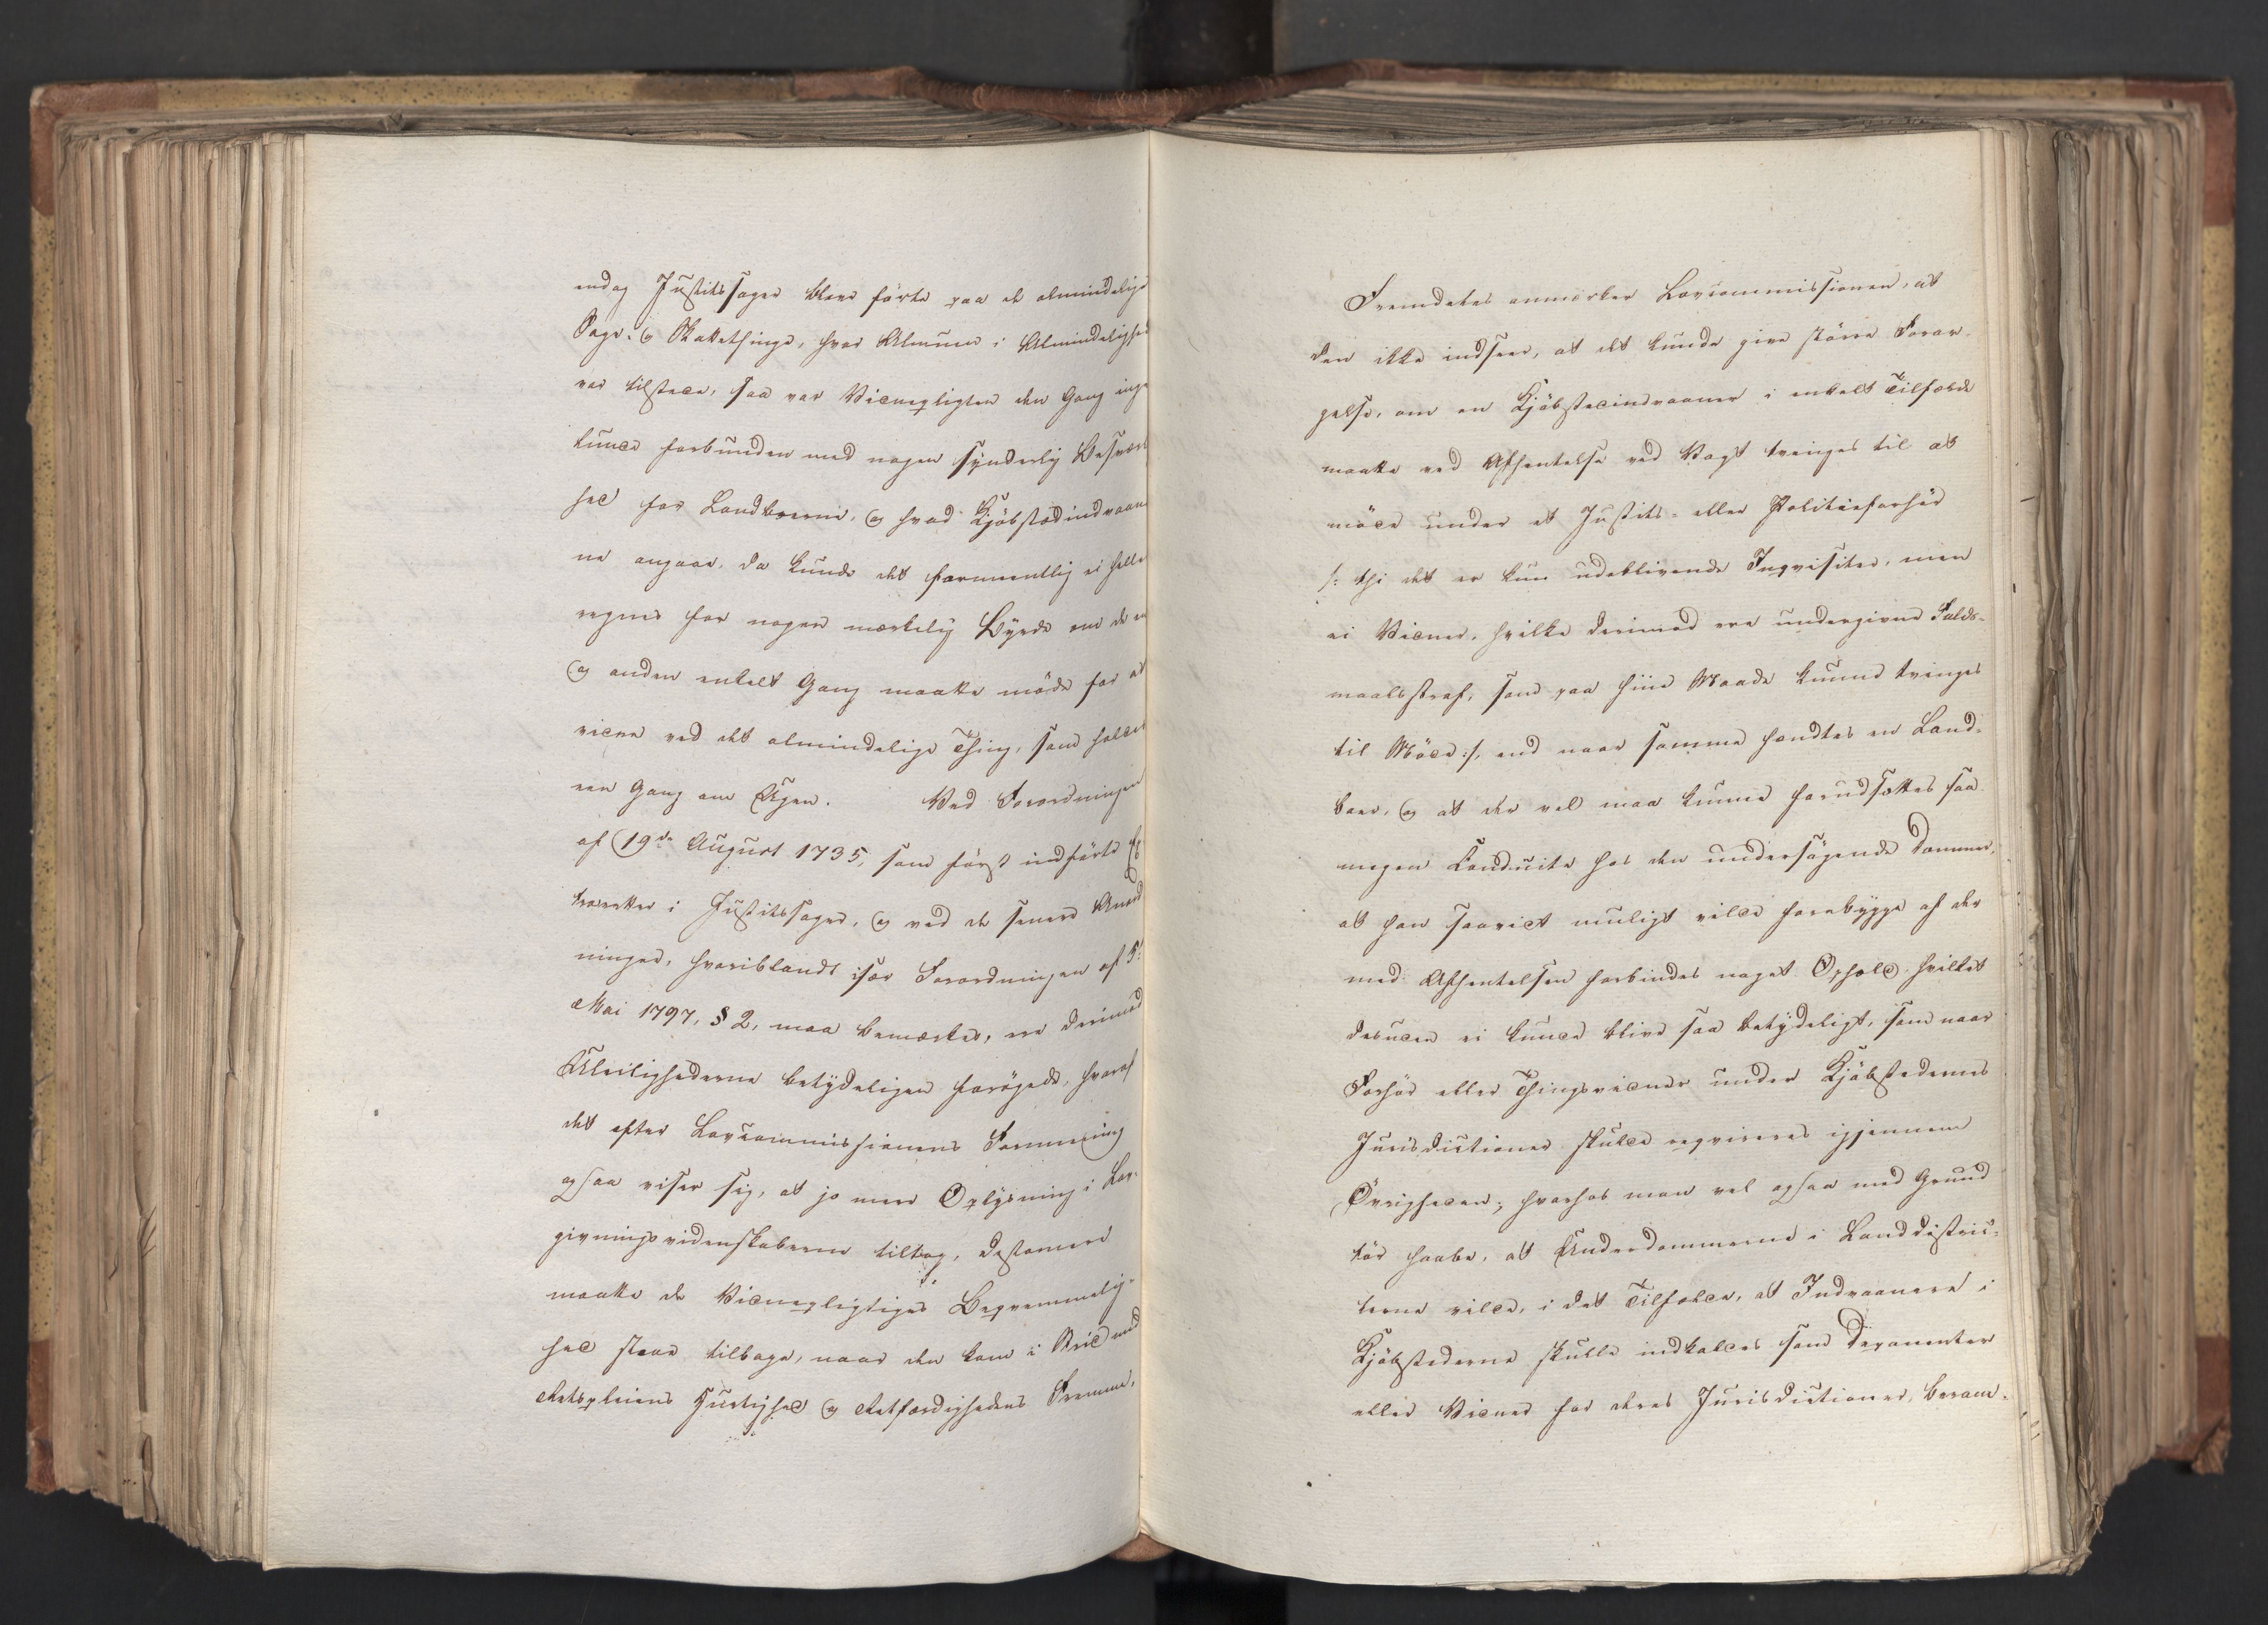 endog Justitssager bleve førte paa de almindelige
Sage- og Skattethinge, hvor Almuen i Almindelighed
var tilstede, saa var Vidnepligten den Gang inge
lunde forbunden med nogen synderlig Besvær
hed for Landboerne, og hvad Kjøbstædindvaaner
ne angaaer, da kunde det formeentlig ei heller
regnes for nogen mærkelig Byrde om de en
og anden enkelt Gang maatte møde for at
vidne ved det almindelige Thing, som holdes
een Gang om Ugen. Ved Forordningen
af 19de August 1735, som først indførte Ex
traretter i Justitssager, og ved de senere Anord
ninger, hvoriblandt især Forordningen af 5te
Mai 1797, § 2, maa bemærkes, ere derimod
Uleilighederne betydeligen forøgede, hvoraf
det efter Lovcommissionens Formening
ogsaa viser sig, at jo meer Oplysning i Lov-
givningsvidenskaberne tiltog, destomere
maatte de Vidnepligtiges Beqvemmelig-
hed staae tilbage, naar den kom i Strid med
Retspleiens Hurtighed og Retfærdighedens Fremme.
Fremdeles anmærker Lovcommissionen, at
den ikke indseer, at det kunde give større Forar-
gelse, om en Kjøbstedindvaaner i enkelt Tilfælde
maatte ved Afhentelse ved Vagt tvinges til at
møde under et Justits- eller Politieforhør
/: thi det er kun udeblivende Inqvisiter, men
ei Vidner, hvilke derimod ere undergivne Falds-
maalsstraf, som paa hiin Maade kunne tvinges
til Møde :/, end naar samme hændtes en Land-
boer, og at der vel maa kunne forudsættes saa
megen Conduite hos den undersøgende Dommer,
at han saavidt muligt vilde forebygge af der
med Afhentelsen forbindes noget Ophold, hvilket
desuden ei kunde blive saa betydeligt, som naar
Forhør eller Thingsvidner under Kjøbstedernes
Jurisdictioner skulde reqvireres igjennem
Øvrigheden; hvorhos man vel ogsaa med Grund
tør haabe, at Underdommerne i Landdistric-
terne vilde, i det Tilfælde, at Indvaanere i
Kjøbstederne skulle indkaldes som Deponenter
eller Vidner for deres Jurisdictioner, beram-